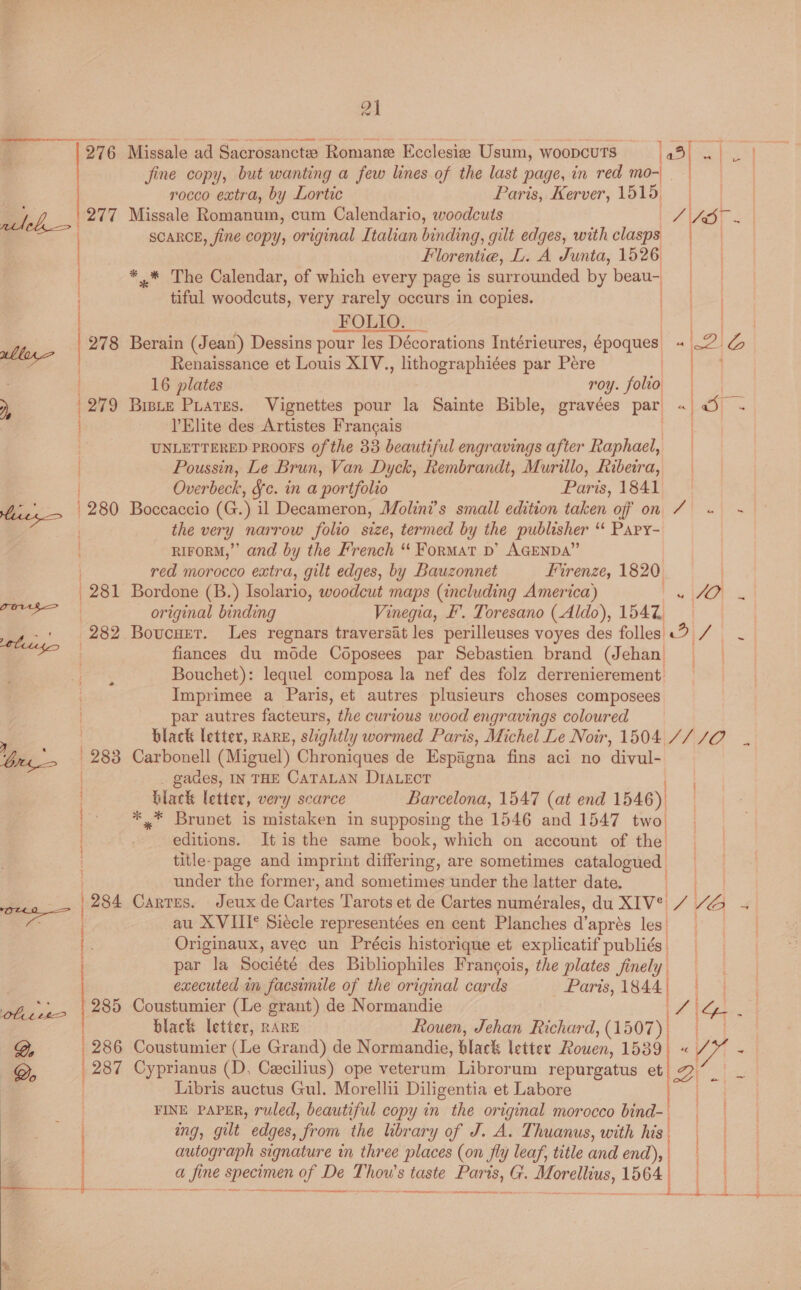 21
276 Missale ad Sacrosanctæ Romanæ Ecclesiæ Usum, WOODCUTS
fine copy, but wanting a few lines of the last page, in red mo-
rocco extra, by Lortic Paris, Kerver, 1515
277 Missale Romanum, cum Calendario, woodcuts
SCARCE, fine copy, original Italian binding, gilt edges, with clasps
Florentiæ, L. A Junta, 1526
*** The Calendar, of which every page is surrounded by beau-
tiful woodcuts, very rarely occurs in copies.
FOLIO.
278 Berain (Jean) Dessins pour les Décorations Intérieures, époques
Renaissance et Louis XIV., lithographiées par Père
16 plates roy. folio
279 BIBLE PLATES. Vignettes pour la Sainte Bible, gravées par
l'Elite des Artistes Français
UNLETTERED PROOFS of the 33 beautiful engravings after Raphael,
Poussin, Le Brun, Van Dyck, Rembrandt, Murillo, Ribeira,
Overbeck, &c. in a portfolio Paris, 1841
280 Boccaccio (G.) il Decameron, Molini's small edition taken off on
the very narrow folio size, termed by the publisher “ PAPY-
RIFORM,” and by the French “ FORMAT D' AGENDA”
red morocco extra, gilt edges, by Bauzonnet Firenze, 1820
281 Bordone (B.) Isolario, woodcut maps (including America) 10
original binding Vinegia, F. Toresano (Aldo), 1547
282 BOUCHET. Les regnars traversāt les perilleuses voyes des folles
fiances du mōde Cōposees par Sebastien brand (Jehan
Bouchet): lequel composa la nef des folz derrenierement
Imprimee a Paris, et autres plusieurs choses composees
par autres facteurs, the curious wood engravings coloured
black letter, RARE, slightly wormed Paris, Michel Le Noir, 1504 11 10
283 Carbonell (Miguel) Chroniques de Espāgna fins aci no divul-
gades, IN THE CATALAN DIALECT
black letter, very scarce Barcelona, 1547 (at end 1546)
*** Brunet is mistaken in supposing the 1546 and 1547 two
editions. It is the same book, which on account of the
title-page and imprint differing, are sometimes catalogued
under the former, and sometimes under the latter date.
284 CARTES. Jeux de Cartes Tarots et de Cartes numérales, du XIVe
au XVIIIe Siècle representées en cent Planches d'après les
Originaux, avec un Précis historique et explicatif publiés
par la Société des Bibliophiles François, the plates finely
executed in facsimile of the original cards Paris, 1844
285 Coustumier (Le grant) de Normandie
black letter, RARE Rouen, Jehan Richard, (1507)
286 Coustumier (Le Grand) de Normandie, black letter Rouen, 1539
287 Cyprianus (D. Cæcilius) ope veterum Librorum repurgatus et
Libris auctus Gul. Morellii Diligentia et Labore
FINE PAPER, ruled, beautiful copy in the original morocco bind-
ing, gilt edges, from the library of J. A. Thuanus, with his
autograph signature in three places (on fly leaf, title and end),
a fine specimen of De Thou's taste Paris, G. Morellius, 1564